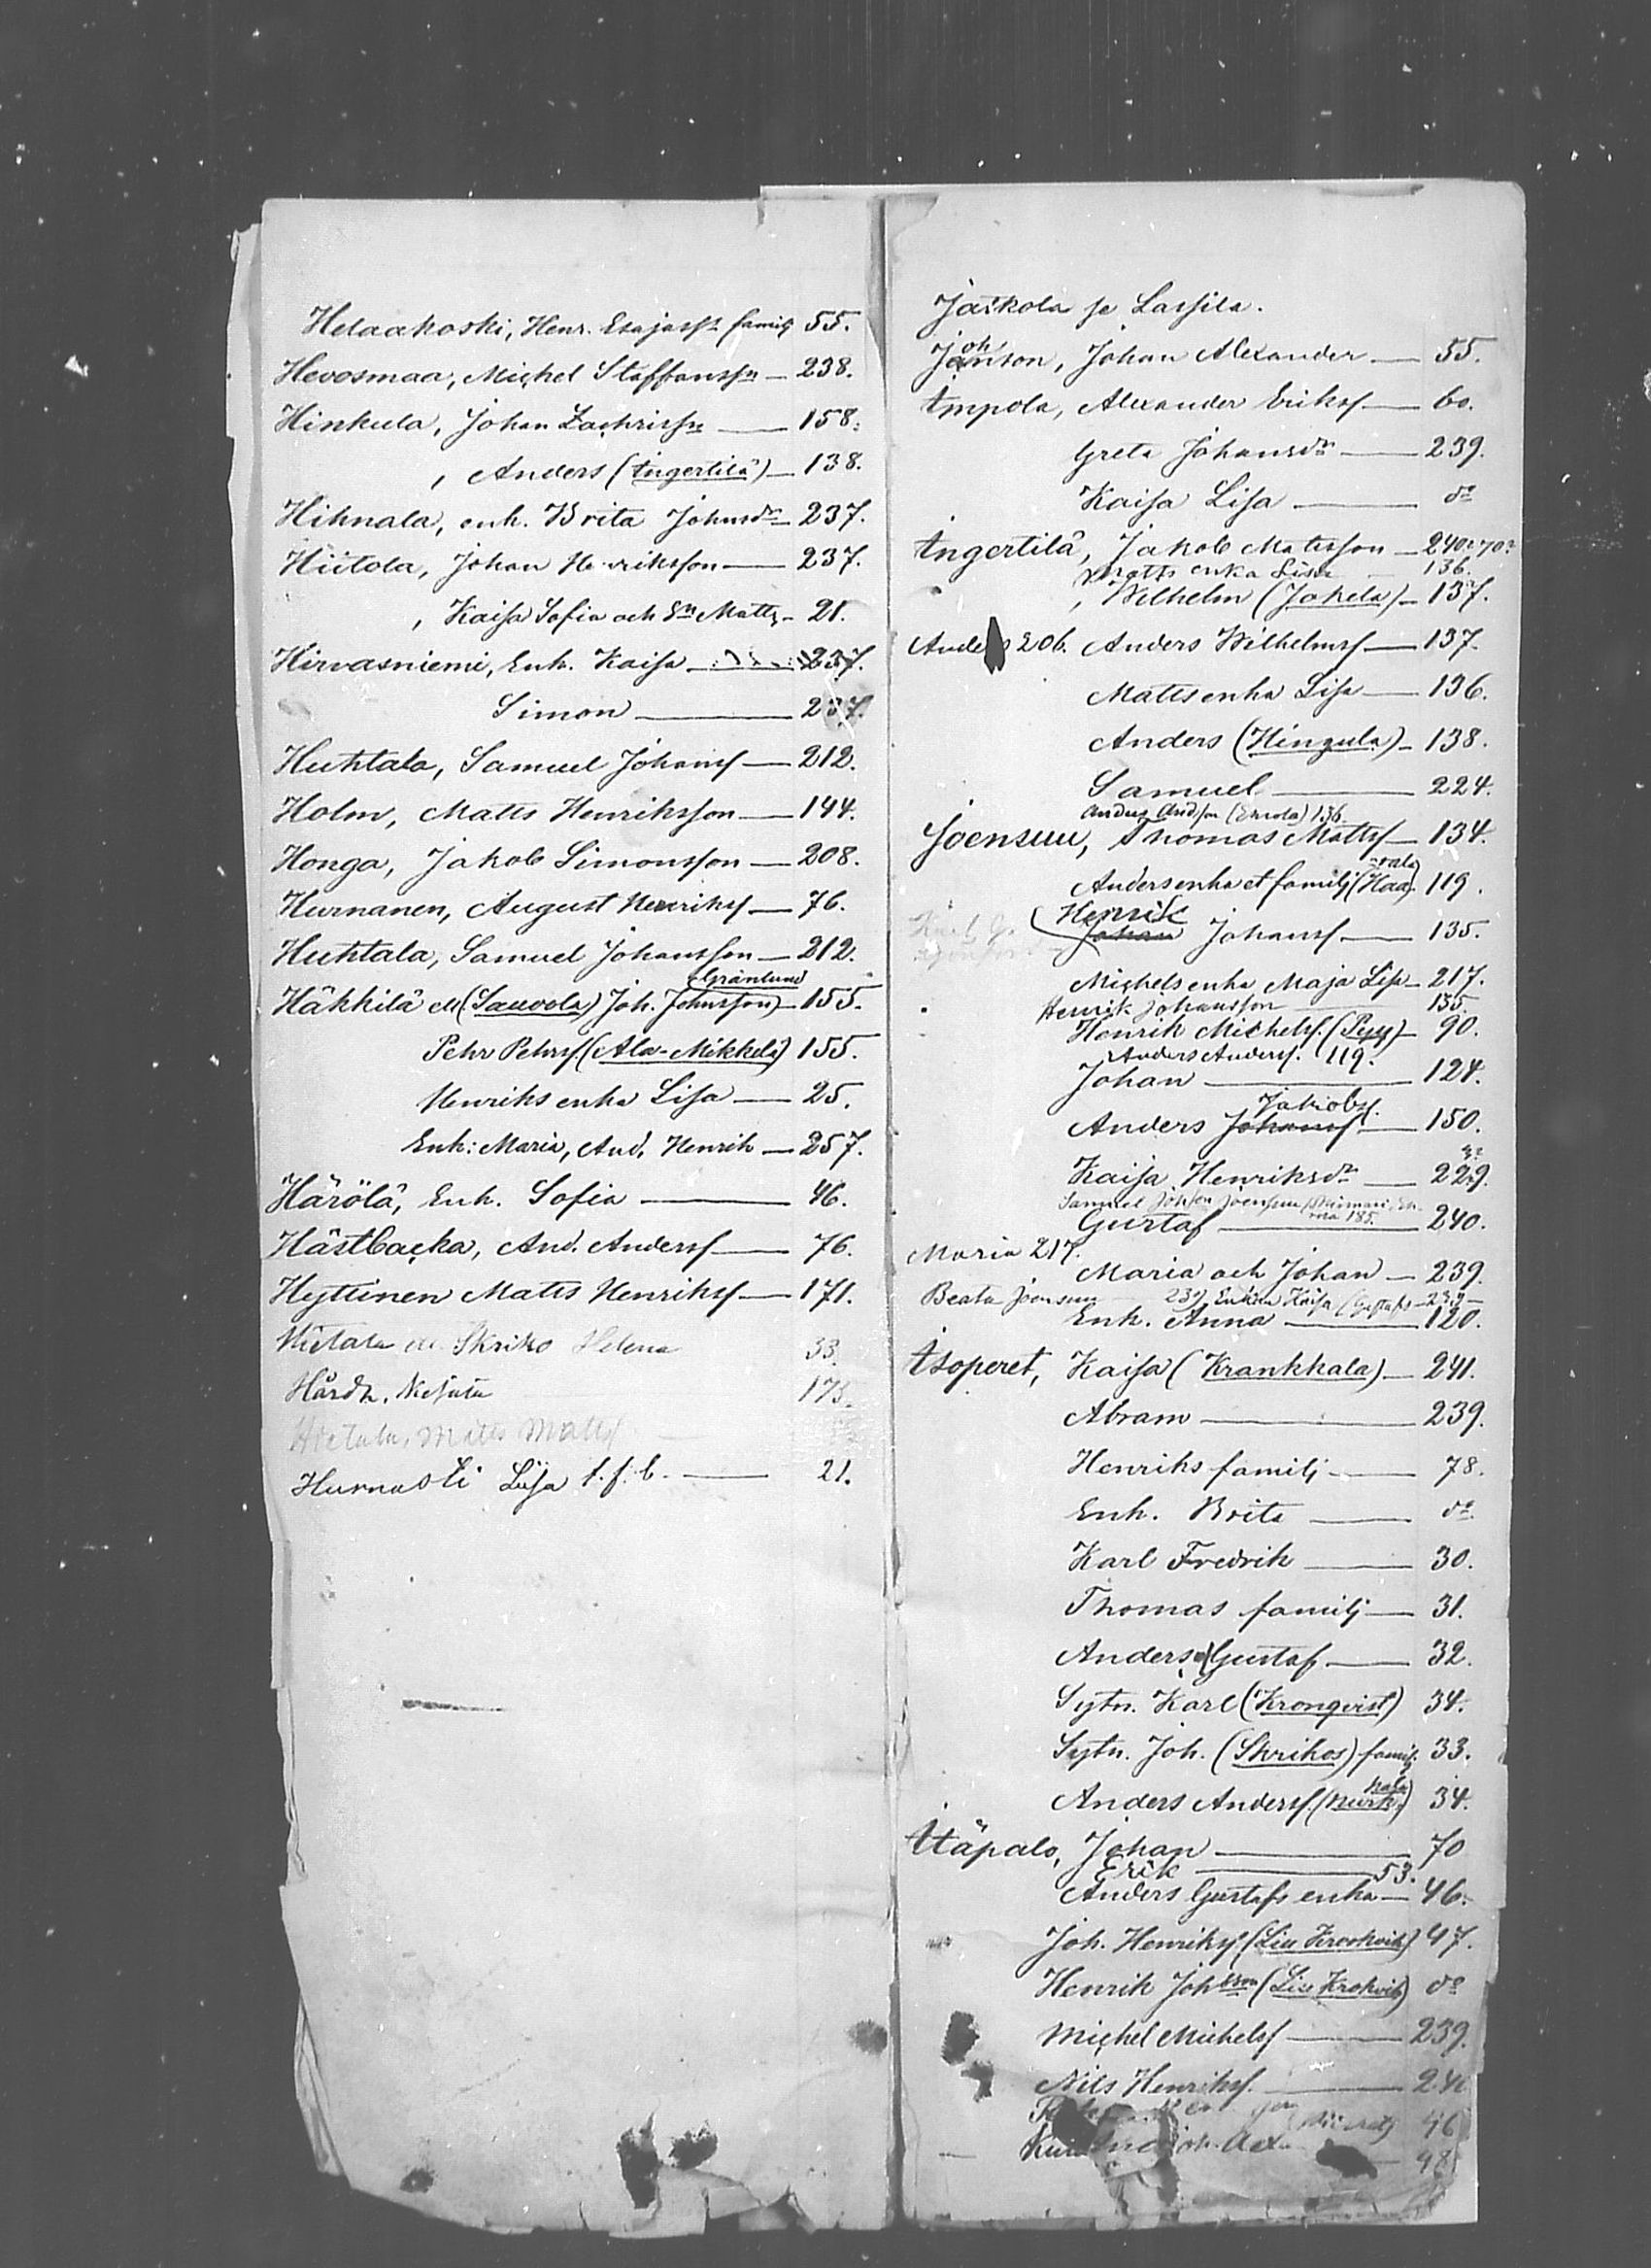 Helaakoski, Henr. Esajass. familj 55.
Hevosmaa, Michel Staffanssn — 238.
Hinkula, Johan Zachrissn — 158.
, Anders (Ingertilä) — 138.
Hihnala, enk. Brita Johnsdr — 237.
Hiitola, Johan Henriksson — 237.
, Kaisa Sofia och Matts — 21.
Hirvasniemi, Enk. Kaisa — 237.
Simon — 237.
Huhtala, Samuel Johanss — 212.
Holm, Matts Henriksson — 144.
Honga, Jakob Simonsson — 208.
Hurnanen, August Henrikss — 76.
Huhtala, Samuel Johansson — 212.
Gränlund
Häkkilä (Sauvola) Joh. Johnsson) — 155.
Pehr Pehrss. (Ala-Mikkelä) 155.
Henriks enka Lisa — 25.
Enk: Maria, And. Henrik — 257.
Härölä, Enk. Sofia — 46.
Hästbacka, And. Anderss — 76.
Hyttinen Matts Henrikss — 171.
Skriko Helena 33.
Hårdh, 173.
Matts Matts
Hurnasti Lisa t.f.b. — 21.
Jaskola se Lassila.
Johnson, Johan Alexander — 55.
Impola, Alexander Erikss — 60.
Greta Johansdr — 239.
Kaisa Lisa — do
Ingertilä, Jakob Matsson — 240. 70.
Matts enka Lisa 136.
, Wilhelm (Jokela) — 137.
Anders 206. Anders Wilhelmss — 137.
Matts enka Lisa — 136.
Anders (Hingula) — 138.
Samuel — 224.
Anders Andsson 136.
Joensuu, Thomas Mattss — 134.
Anders enka et familj (Haarala) 119.
Henrik
Johan Johanss — 135.
Michels enka Maja Lisa — 217.
Henrik Johansson — 135.
Henrik Michelss. (Pyy) — 90.
Anders Anderss. 119.
Johan — 124.
Jakobss.
Anders Johanss — 150.
Kaisa Henriksdr — 229.
Samuel Johsson Joensuu 185.
Gustaf — 240.
Maria 217.
Maria och Johan — 239.
Beata Joensuu 239 Enkan Kaisa (Gustafs — 239 —
Enk. Anna — 120.
Isoperet, Kaisa (Krankkala) — 241.
Abram — 239.
Henriks familj — 78.
Enk. Brita — do
Karl Fredrik — 30.
Thomas familj — 31.
Anders Gustaf — 32.
Sytn. Karl (Kronqvist) 34.
Sytn. Joh. (Skrikos) familj 33.
Anders Anderss. (Nurkkala) 34.
Itäpalo, Johan — 70
Erik — 53.
Anders Gustafs enka — 46.
Joh. Henrikss (Liu Krookvik) 47.
Henrik Johsson (Liu Krokvik) do
Michel Michelss — 239.
Nils Henrikss. — 24
46
48